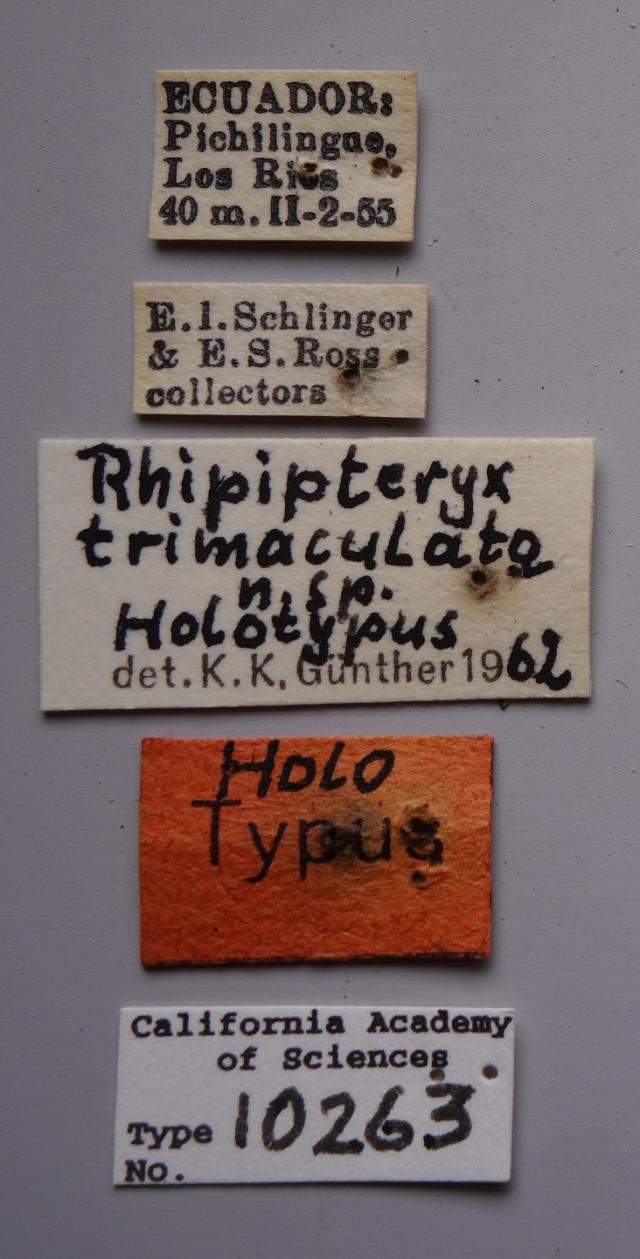 ECUADOR:
Pichilingue,
Los Rios
40 m. II-2-55
E.I.Schlinger
& E.S.Ross
collectors
Rhipipteryx
trimaculata
n.sp.
Holotypus
det. K. K. Günther 1962
Holo
Typus
California Academy
of Sciences
Type 10263
No.